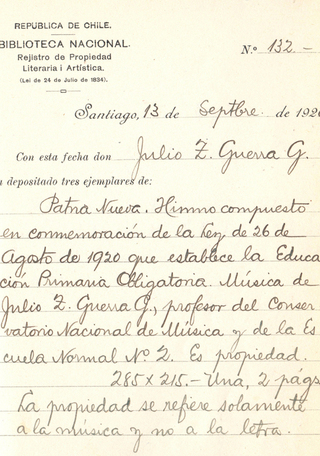 REPÚBLICA DE CHILE.
BIBLIOTECA NACIONAL.
Registro de Propiedad
Literaria i Artística.
(Lei de 24 de Julio de 1834).
N.º 132.-
Santiago, 13 de Septbre. de 192
Con esta fecha don Julio Z. Guerra G.
a depositado tres ejemplares de:
Patria Nueva. Himno compuesto
en conmemoración de la Ley de 26 de
Agosto de 1920 que establece la Educa
ción Primaria Obligatoria. Música de
Julio Z. Guerra G., profesor del Conser
vatorio Nacional de Música y de la Es
cuela Normal Nº 2. Es propiedad.
285 x 215.- Una, 2 págs
La propiedad se refiere solamente
a la música y no a la letra.